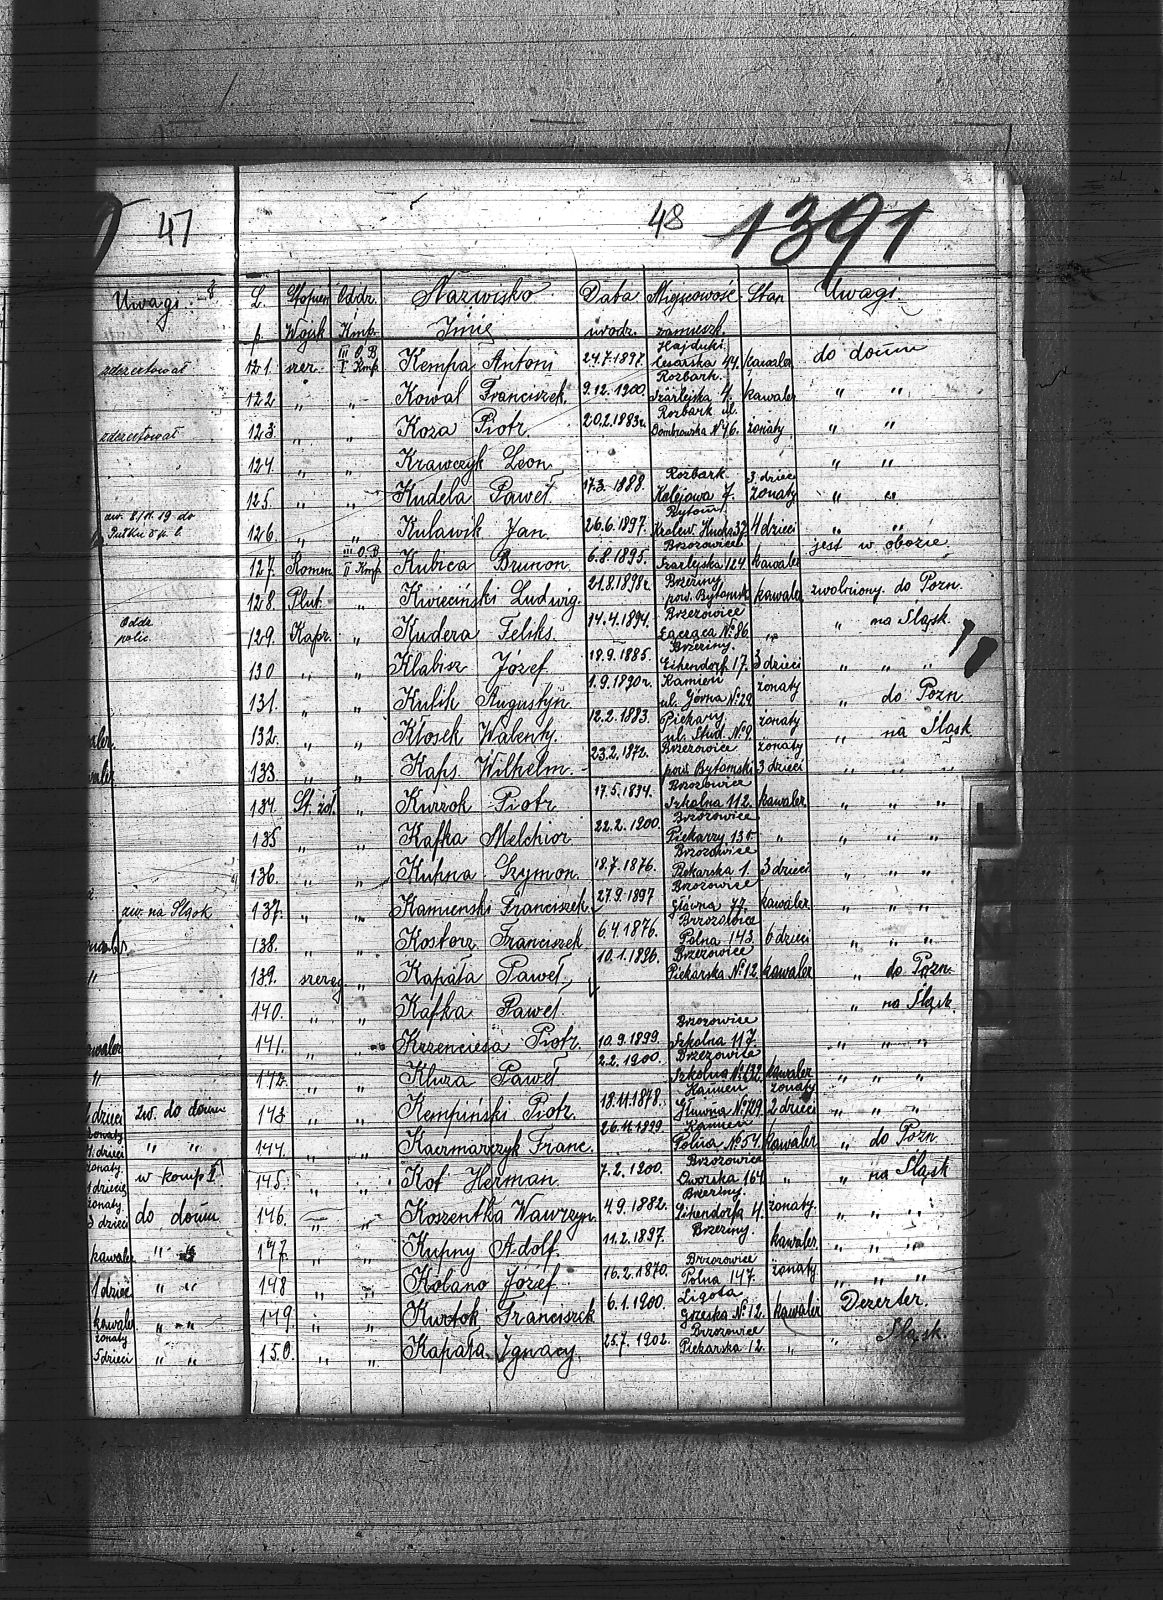 47
48 1391
Uwagi
L. Stopień Oddz. Nazwisko Data Miejscowość Stan Uwagi
p. Wojsk Kmp. Imię urodz. zamieszk.
zdezertował
zdezertował
zw. 8/11.19 do
Pułku
Oddz.
polic.
zw. na Śląsk
kawaler
dzieci zw. do domu
żonaty
dzieci " "
żonaty w komp I
żonaty
3 dzieci do domu
kawaler " "
1 dzieć " "
kawaler " "
żonaty
5 dzieci " "
121. szer. III O.B I Kmp. Kempa Antoni 24.7.1897. Hajduki Cesarska 44. kawaler do domu
122. " " Kowal Franciszek 9.12.1900. Rozbark. Szarlejska 4. kawaler " "
123. " " Koza Piotr. 20.2.1883r. Rozbark ul. Dombrowska № 46. żonaty " "
124. " " Krawczyk Leon " "
125. " " Kudela Paweł 17.3.1888. Rozbark. Kolejowa 7. 3 dzieci żonaty " "
126. " " Kulawik Jan. 26.6.1897. Bytom. Królew. Hucka 37. 4 dzieci " "
127. Komen. III O.B II Kmp. Kubica Brunon 6.8.1895. Brzozowice Szarlejska 124 kawaler jest w obozie
128. Plut. " Kwieciński Ludwig. 21.8.1898r. Brzeziny pow. Bytomsk kawaler zwolniony do Pozn.
129. Kapr. " Kudera Feliks. 14.4.1894. Brzezowice Łącząca № 86 " " na Śląsk.
130 " " Klabisz Józef 18.9.1885. Brzeziny. Eihendorf 17. 3 dzieci " " "
131. " " Kulik Augustyn 1.9.1890r. Kamień ul. Górna № 29 żonaty " do Pozn
132. " " Kłosek Walenty. 12.2.1883. Piekary ul. Stud. № 9 żonaty " na Śląsk
133. " " Kaps. Wilhelm. 23.2.1872. Brzezowice pow. Bytomski żonaty 3 dzieci " " "
134. St. żoł. " Kurzok Piotr 17.5.1894. Brzozowice Szkolna 112. kawaler " " "
135 " " Kafka Melchior 22.2.1900. Brzozowice Piekarzy 13 " " " "
136. " " Kupna Szymon. 18.7.1876. Brzozowice Piekarska 1. 3 dzieci " " "
137. " " Kamienski Franciszek. 27.9.1897 Brzozowice Główna 77. kawaler. " " "
138. " " Kostorz Franciszek 6.4.1876. Brzozowice Polna 143. 6 dzieci " " "
139. szereg. " Kapała Paweł, 10.1.1896. Brzezowice Piekarska № 12 kawaler " do Pozn.
140. " " Kafka Paweł " na Śląsk.
141. " " Krzenciesa Piotr. 10.9.1899. Brzozowice Szkolna 117. " " "
142. " " Kluza Paweł 2.2.1900. Brzezowice Szkolna № 132. kawaler " " "
143 " " Kempiński Piotr. 18.11.1878. Kamień Główna № 129 żonaty 2 dzieci " " "
144. " " Kaczmarczyk Franc. 26.11.1899. Kamień Polna № 54. kawaler " do Pozn
145. " " Kot Herman. 7.2.1900. Brzozowice Dworska 164. " " na Śląsk
146. " " Koszentka Wawrzyn. 4.9.1882. Brzeziny. Eihendorfa 4. żonaty. " " "
147. " " Kupny Adolf. 11.2.1897. Brzeziny. kawaler. " " "
148 " " Kobano Józef. 16.2.1870. Brzozowice Polna 147. żonaty " " "
149. " " Kurtok Franciszek 6.1.1900. Ligota Grzeska № 12. kawaler Dezerter.
150. " " Kapała Ignacy. 25.7.1902. Brzozowice Piekarska 12. " " Śląsk.